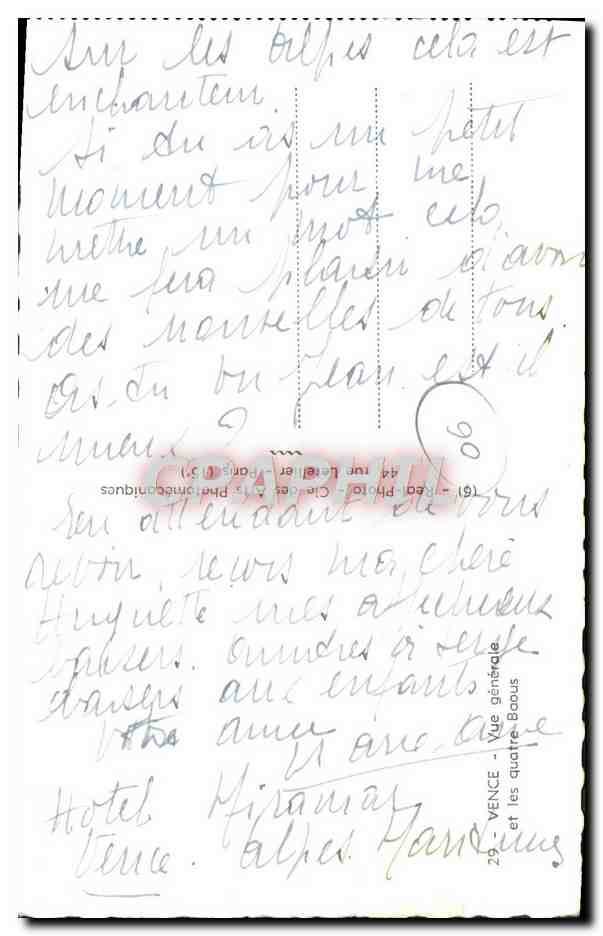 Sur les Alpes cela est
enchanteur.
Si tu as un petit
moment pour me
mettre un mot cela
me fera plaisir d'avoir
des nouvelles de tous.
as-tu vu Jean est il
mieux ?
En attendant de vous
revoir, reçois ma chère
Huguette mes affectueux
baisers. amitiés à Serge
baisers aux enfants
Votre amie
Marie-Jane
Hotel Miramar
Vence. Alpes Maritimes
06
(6) - Réal-Photo - Cie des Arts Photomécaniques
44, rue Letellier - Paris (15e)
29 - VENCE - Vue générale
et les quatre Baous
CPAPHIL